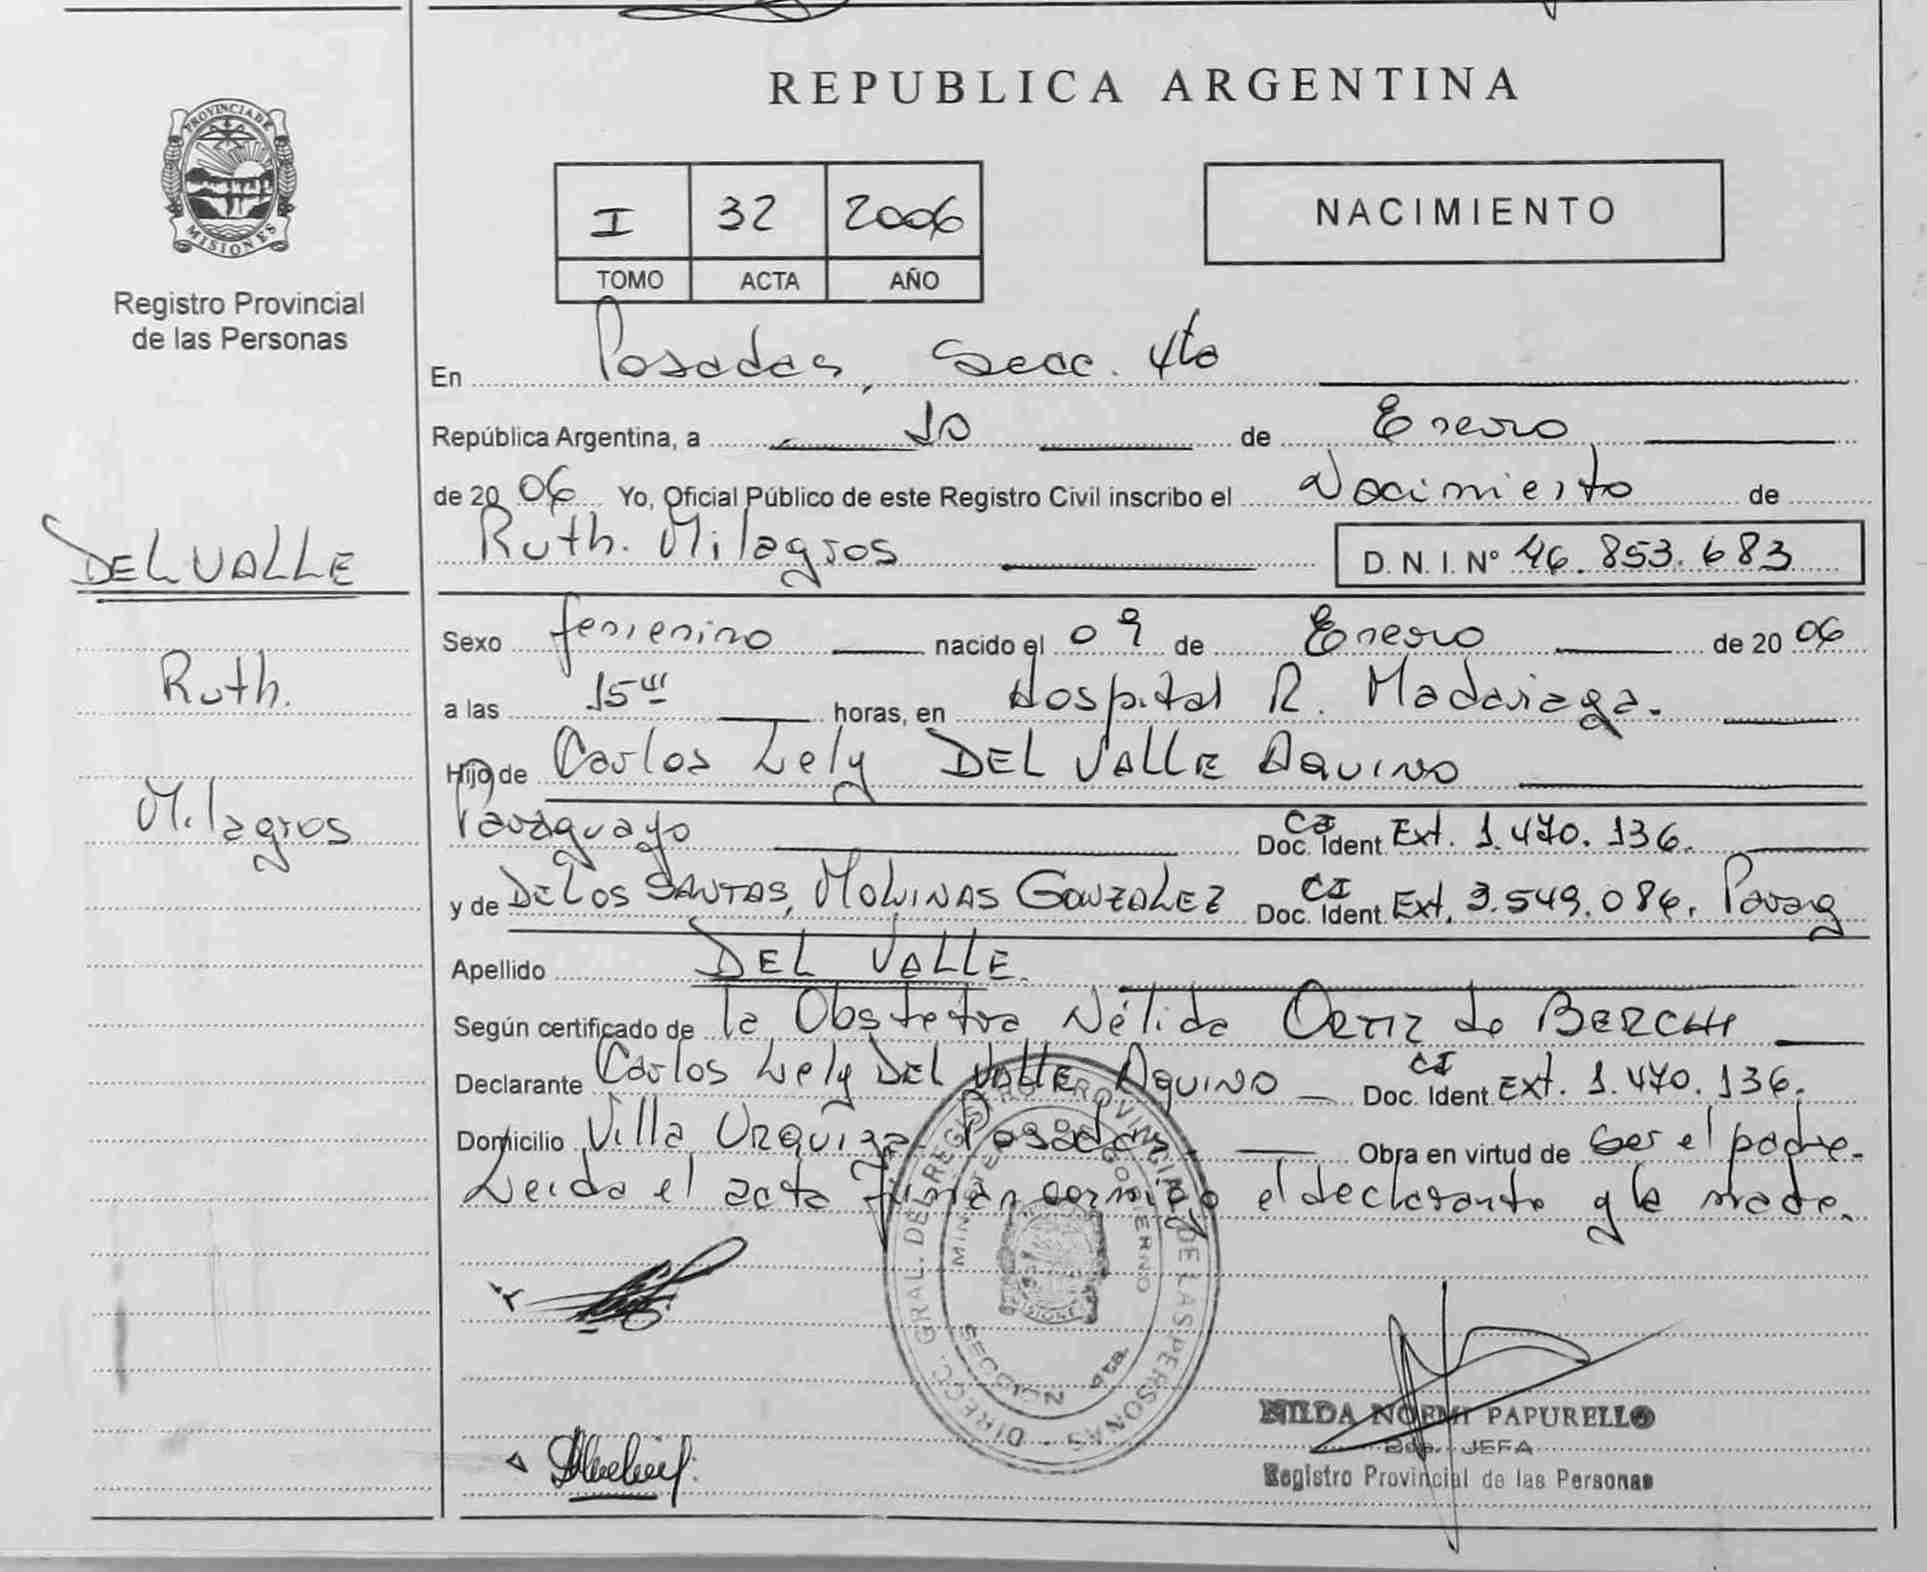 REPUBLICA ARGENTINA
PROVINCIA DE MISIONES
Registro Provincial
de las Personas
I 32 2006
TOMO ACTA AÑO
NACIMIENTO
En Posadas, Secc. 4ta
República Argentina, a 10 de Enero
de 2006 Yo, Oficial Público de este Registro Civil inscribo el Nacimiento de
Ruth. Milagros D. N. I. N° 46.853.683
DEL VALLE
Ruth.
Milagros
Sexo femenino nacido el 09 de Enero de 2006
a las 15 horas, en Hospital R. Madariaga.
Hijo de Carlos Lely DEL VALLE AQUINO
Paraguayo CI Doc. Ident. Ext. 1.470.136.
y de DE LOS SANTAS, MOLINAS GONZALEZ CI Doc. Ident. Ext. 3.549.084. Parag
Apellido DEL VALLE.
Según certificado de la Obstetra Nélida ORTIZ de BERCHI
Declarante Carlos Lely DEL VALLE AQUINO CI Doc. Ident. Ext. 1.470.136.
Domicilio Villa URQUIZA, Posadas. Obra en virtud de ser el padre.
Leida el acta firman conmigo el declarante y la madre.
DIRECC. GRAL. DEL REGISTRO PROVINCIAL DE LAS PERSONAS
MINISTERIO DE GOBIERNO
SECCION 4ta.
NILDA NOEMI PAPURELLO
JEFA
Registro Provincial de las Personas